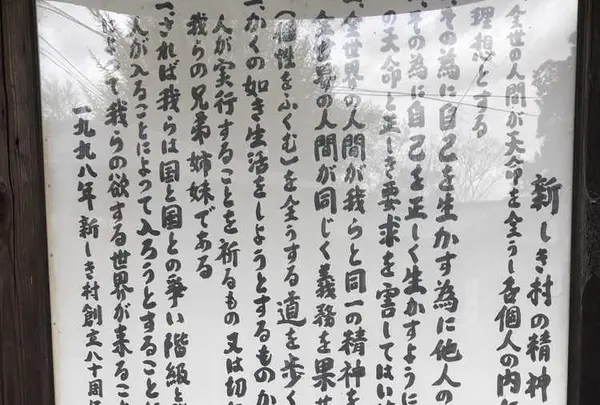 新しき村の精神
全世の人間が天命を全うし各個人の内
理想とする
その為に自己を生かす為に他人の
その為に自己を正しく生かすように
の天命と正しき要求を害してはい
全世界の人間が我らと同一の精神を
全世界の人間が同じく義務を果せ
(個性をふくむ)を全うする道を歩く
一、かくの如き生活をしようとするものか
人が実行することを祈るもの又は切
我らの兄弟姉妹である
一、されば我らは国と国との争い階級と
人が入ることによって入ろうとすること
よって我らの欲する世界が来るこ
一九九八年 新しき村創立八十周